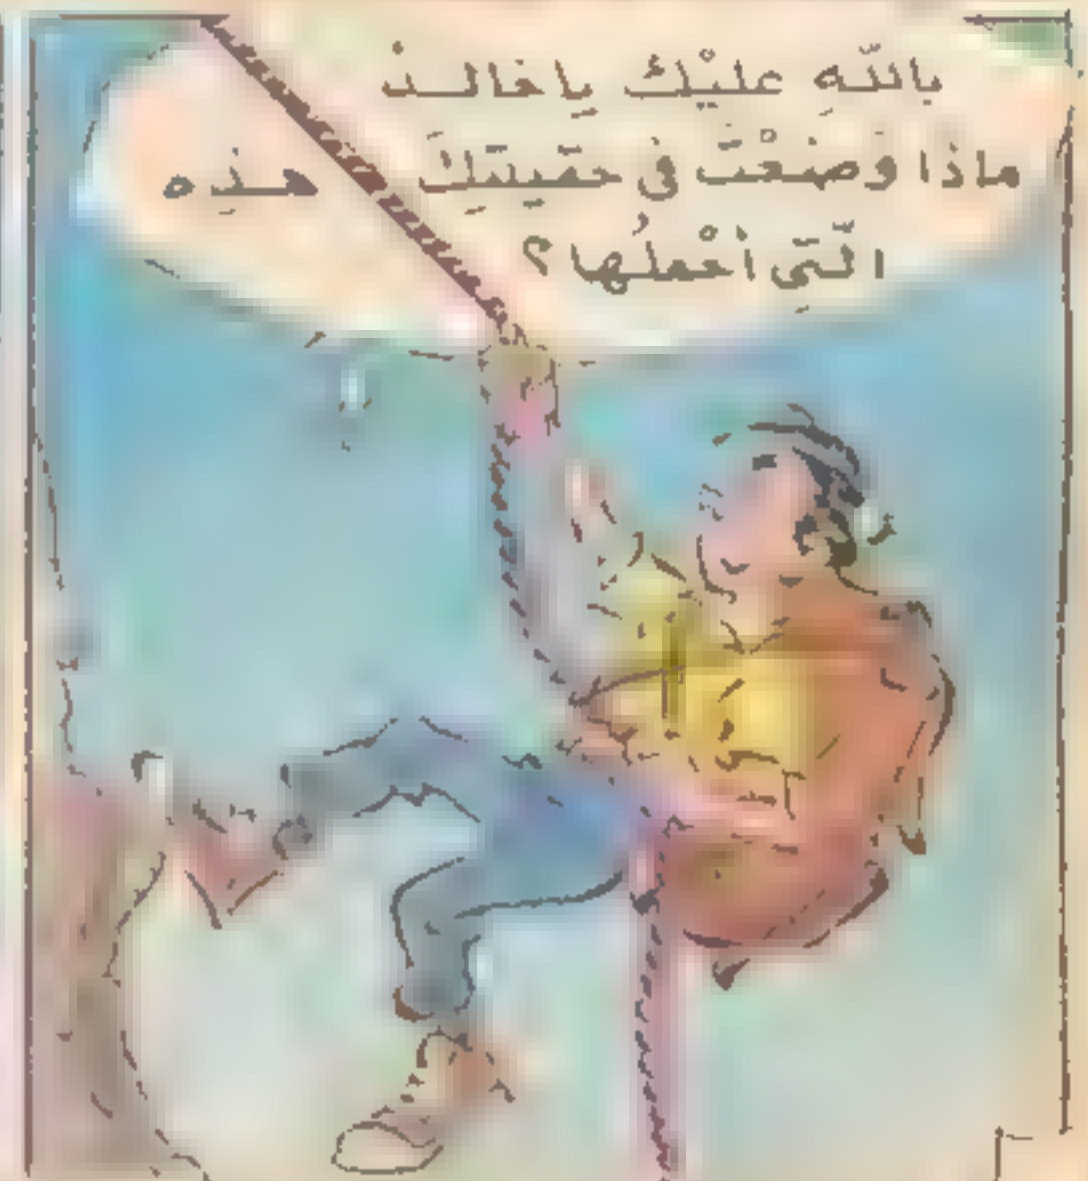 باللّهِ عليْكَ يا خالـدْ
ماذا وَضعْتَ فى حقيبتِكَ هـذِه
الّتى أحْملُها ؟